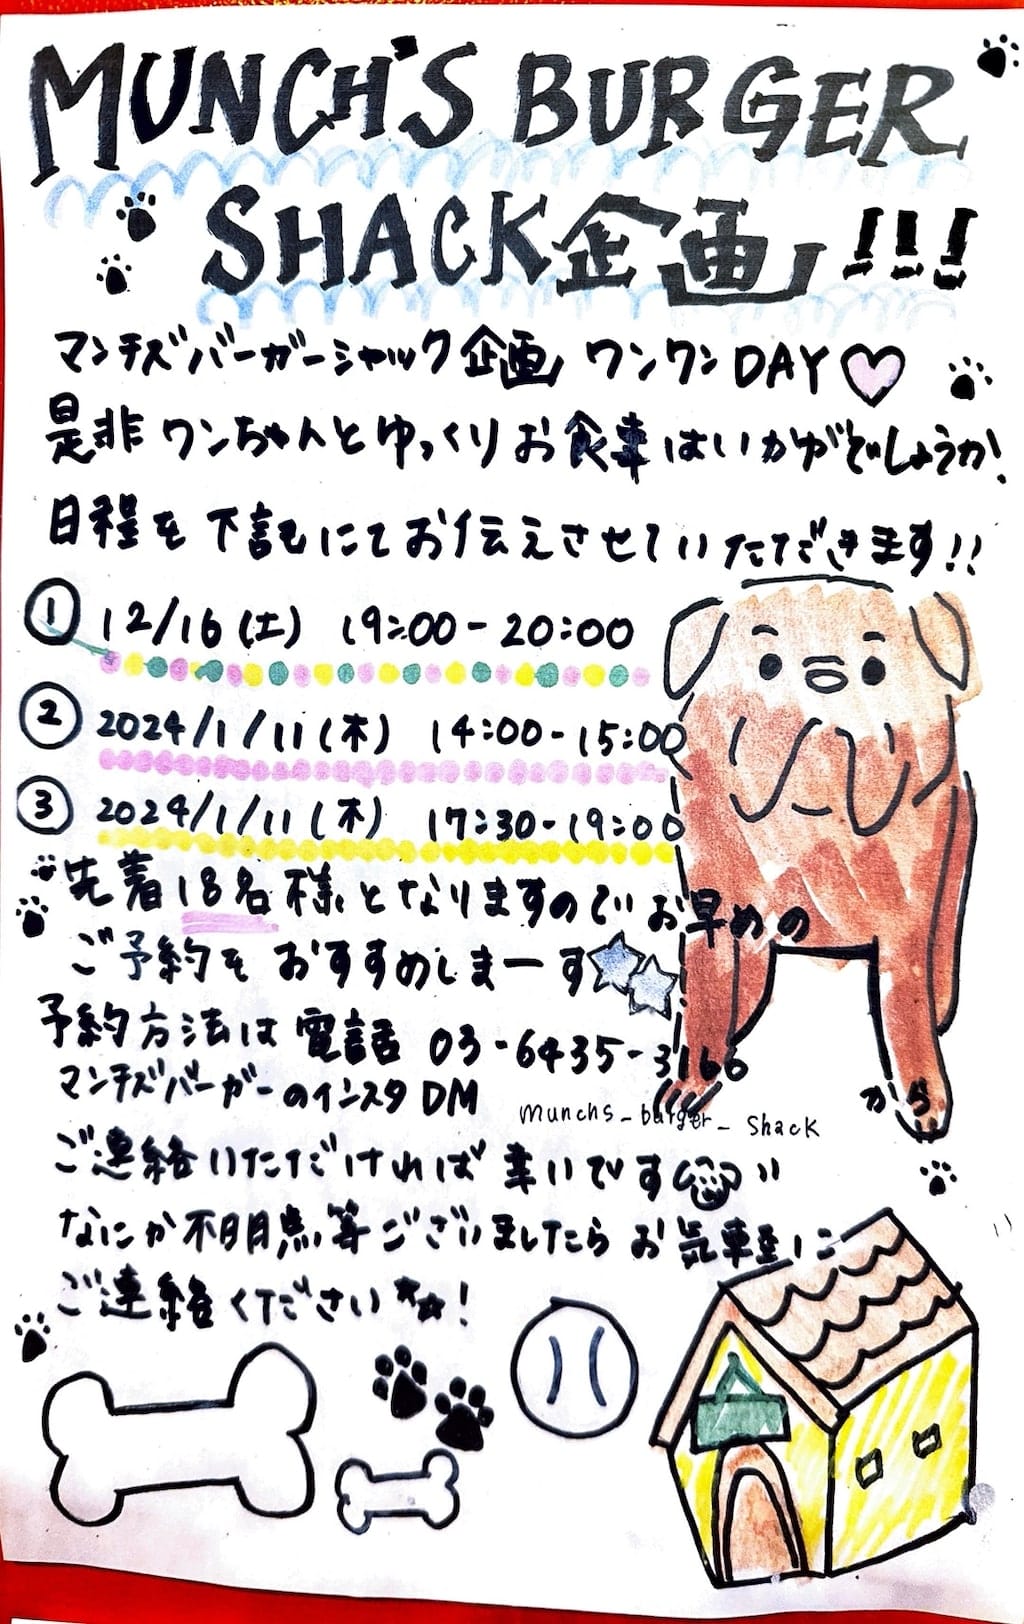 MUNCH'S BURGER
SHACK企画!!!
マンチズバーガーシャック企画 ワンワンDAY♡
是非ワンちゃんとゆっくりお食事はいかがでしょうか!
日程を下記にてお伝えさせていただきます!!
① 12/16(土) 19:00-20:00
② 2024/1/11(木) 14:00-15:00
③ 2024/1/11(木) 17:30-19:00
先着18名様となりますのでお早めの
ご予約をおすすめしまーす
予約方法は電話 03-6435-3166
マンチズバーガーのインスタDM munchs_burger_shack から
ご連絡いただければ幸いです
なにか不明点等ございましたらお気軽に
ご連絡ください☆☆!